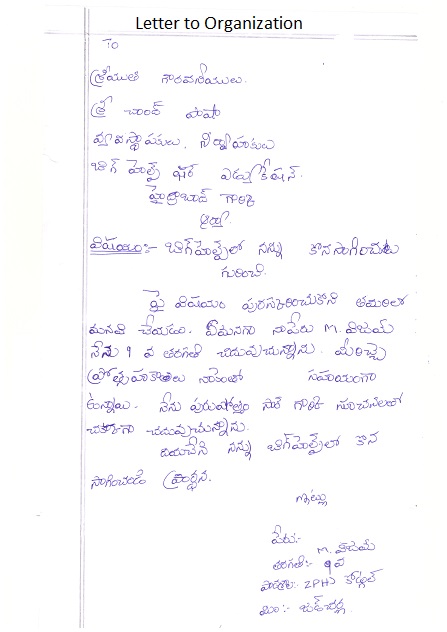 Letter to Organization
To
శ్రీయుత గౌరవనీయులు.
శ్రీ చాంద్ పాషా
వ్యవస్థాపకులు, నిర్వాహకులు
బిగ్ హెల్ప్ ఫర్ ఎడ్యుకేషన్.
హైద్రాబాద్ గారికి
ఆర్యా.
విషయం:- బిగ్‌హెల్ప్‌లో నన్ను కొనసాగించుట
గురించి.
పై విషయం పురస్కరించుకొని తమరిలో
మనవి చేయునది. ఏమనగా నాపేరు M. విజయ్
నేను 9 వ తరగతి చదువుచున్నాను. మీరిచ్చే
ప్రోత్సాహకాలు నాకెంతో సహాయంగా
ఉన్నాయి. నేను పురుషోత్తం సార్ గారికి సూచనలతో
చక్కగా చదువుచున్నాను.
దయచేసి నన్ను బిగ్‌హెల్ప్‌లో కొన
సాగించండి ప్రార్థన.
ఇట్లు
పేరు:-
M. విజయ్
తరగతి:- 9వ
పాఠశాల:- ZPHS
మం:- జడ్చర్ల